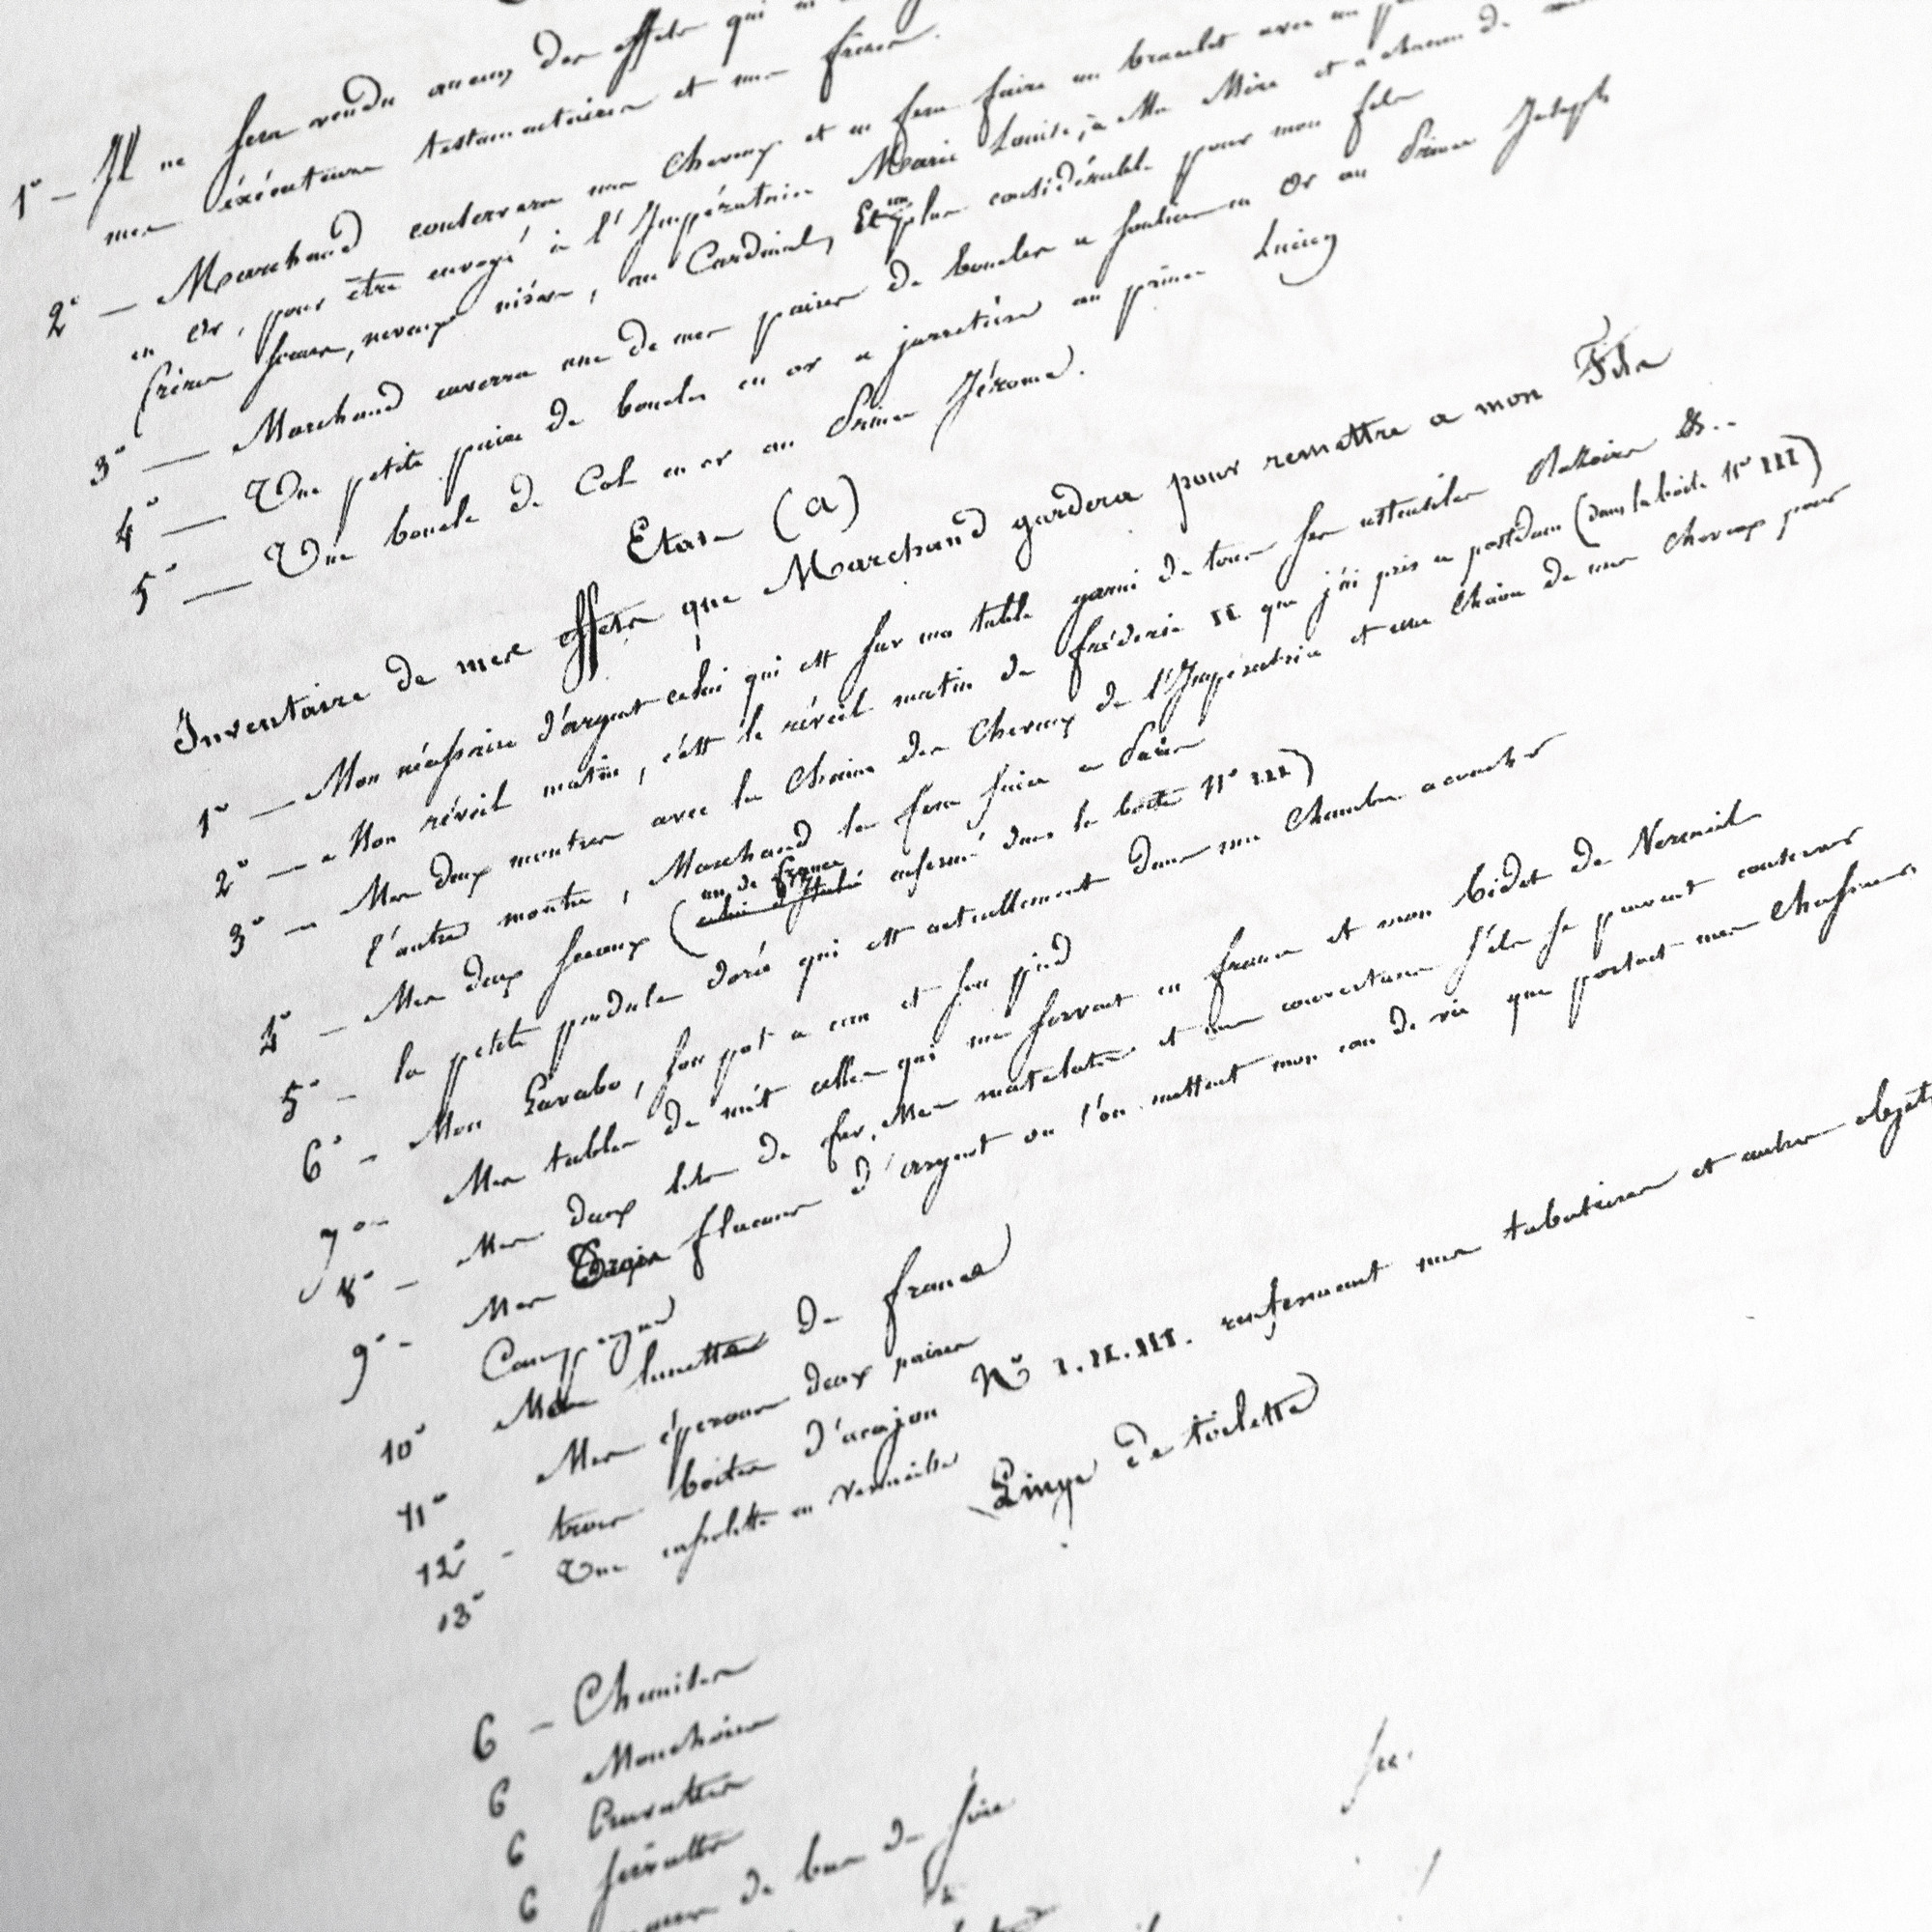 1° — Il ne sera vendu aucun des effets qui
mes éxécuteurs testamentaires et mes frères.
2° — Marchand conservera mes cheveux et en fera faire un bracelet avec un
en or, pour être envoyé à l'Impératrice Marie Louise, à Ma Mère et à chacun de
frères soeurs, neveux nièces, au Cardinal, Et un plus considérable pour mon fils
3° — Marchand enverra une de mes paires de boucles a souliers en Or au Prince Joseph
4° — Une petite paire de boucles en or a jarretière au prince Lucien
5° — Une boucle de Col en or au Prince Jérome.
Etats (a)
Inventaire de mes effets que Marchand gardera pour remettre a mon Fils
1° — Mon nécessaire d'argent celui qui est sur ma table garni de tous ses ustensiles Razoirs &..
2° — Mon réveil matin, c'est le réveil matin de fréderic II que j'ai pris a postdam (dans la boite N° III)
3° — Mes deux montres avec la Chaine des Cheveux de l'Impératrice et une Chaine de mes Cheveux pour
l'autre montre, Marchand la fera faire a Paris
un de france
4° — Mes deux sceaux (celui d'Italie enfermé dans la boite N° III)
5° — la petite pendule dorée qui est actuellement dans ma Chambre a coucher
6° — Mon Lavabo, son pot a eau et son pied
7° — Mes tables de nuit celles qui me servent en france et mon bidet de Vermeil
8° — Mes deux lits de fer, Mes matelats et mes couvertures s'ils se peuvent conserver
9° — Mes Trois flacons d'argent ou l'on mettent mon eau de vie que portent mes Chasseurs
Campagne
10° Mes lunettes de france
11° Mes éperons deux paires
12° — trois boites d'acajou N° I.II.III. renfermant mes tabatieres et autres objets
13° Une cassolette en vermeille
Linge de toilette
6 — Chemises
6 Mouchoirs
6 Cravattes
6 serviettes
de bas de soie